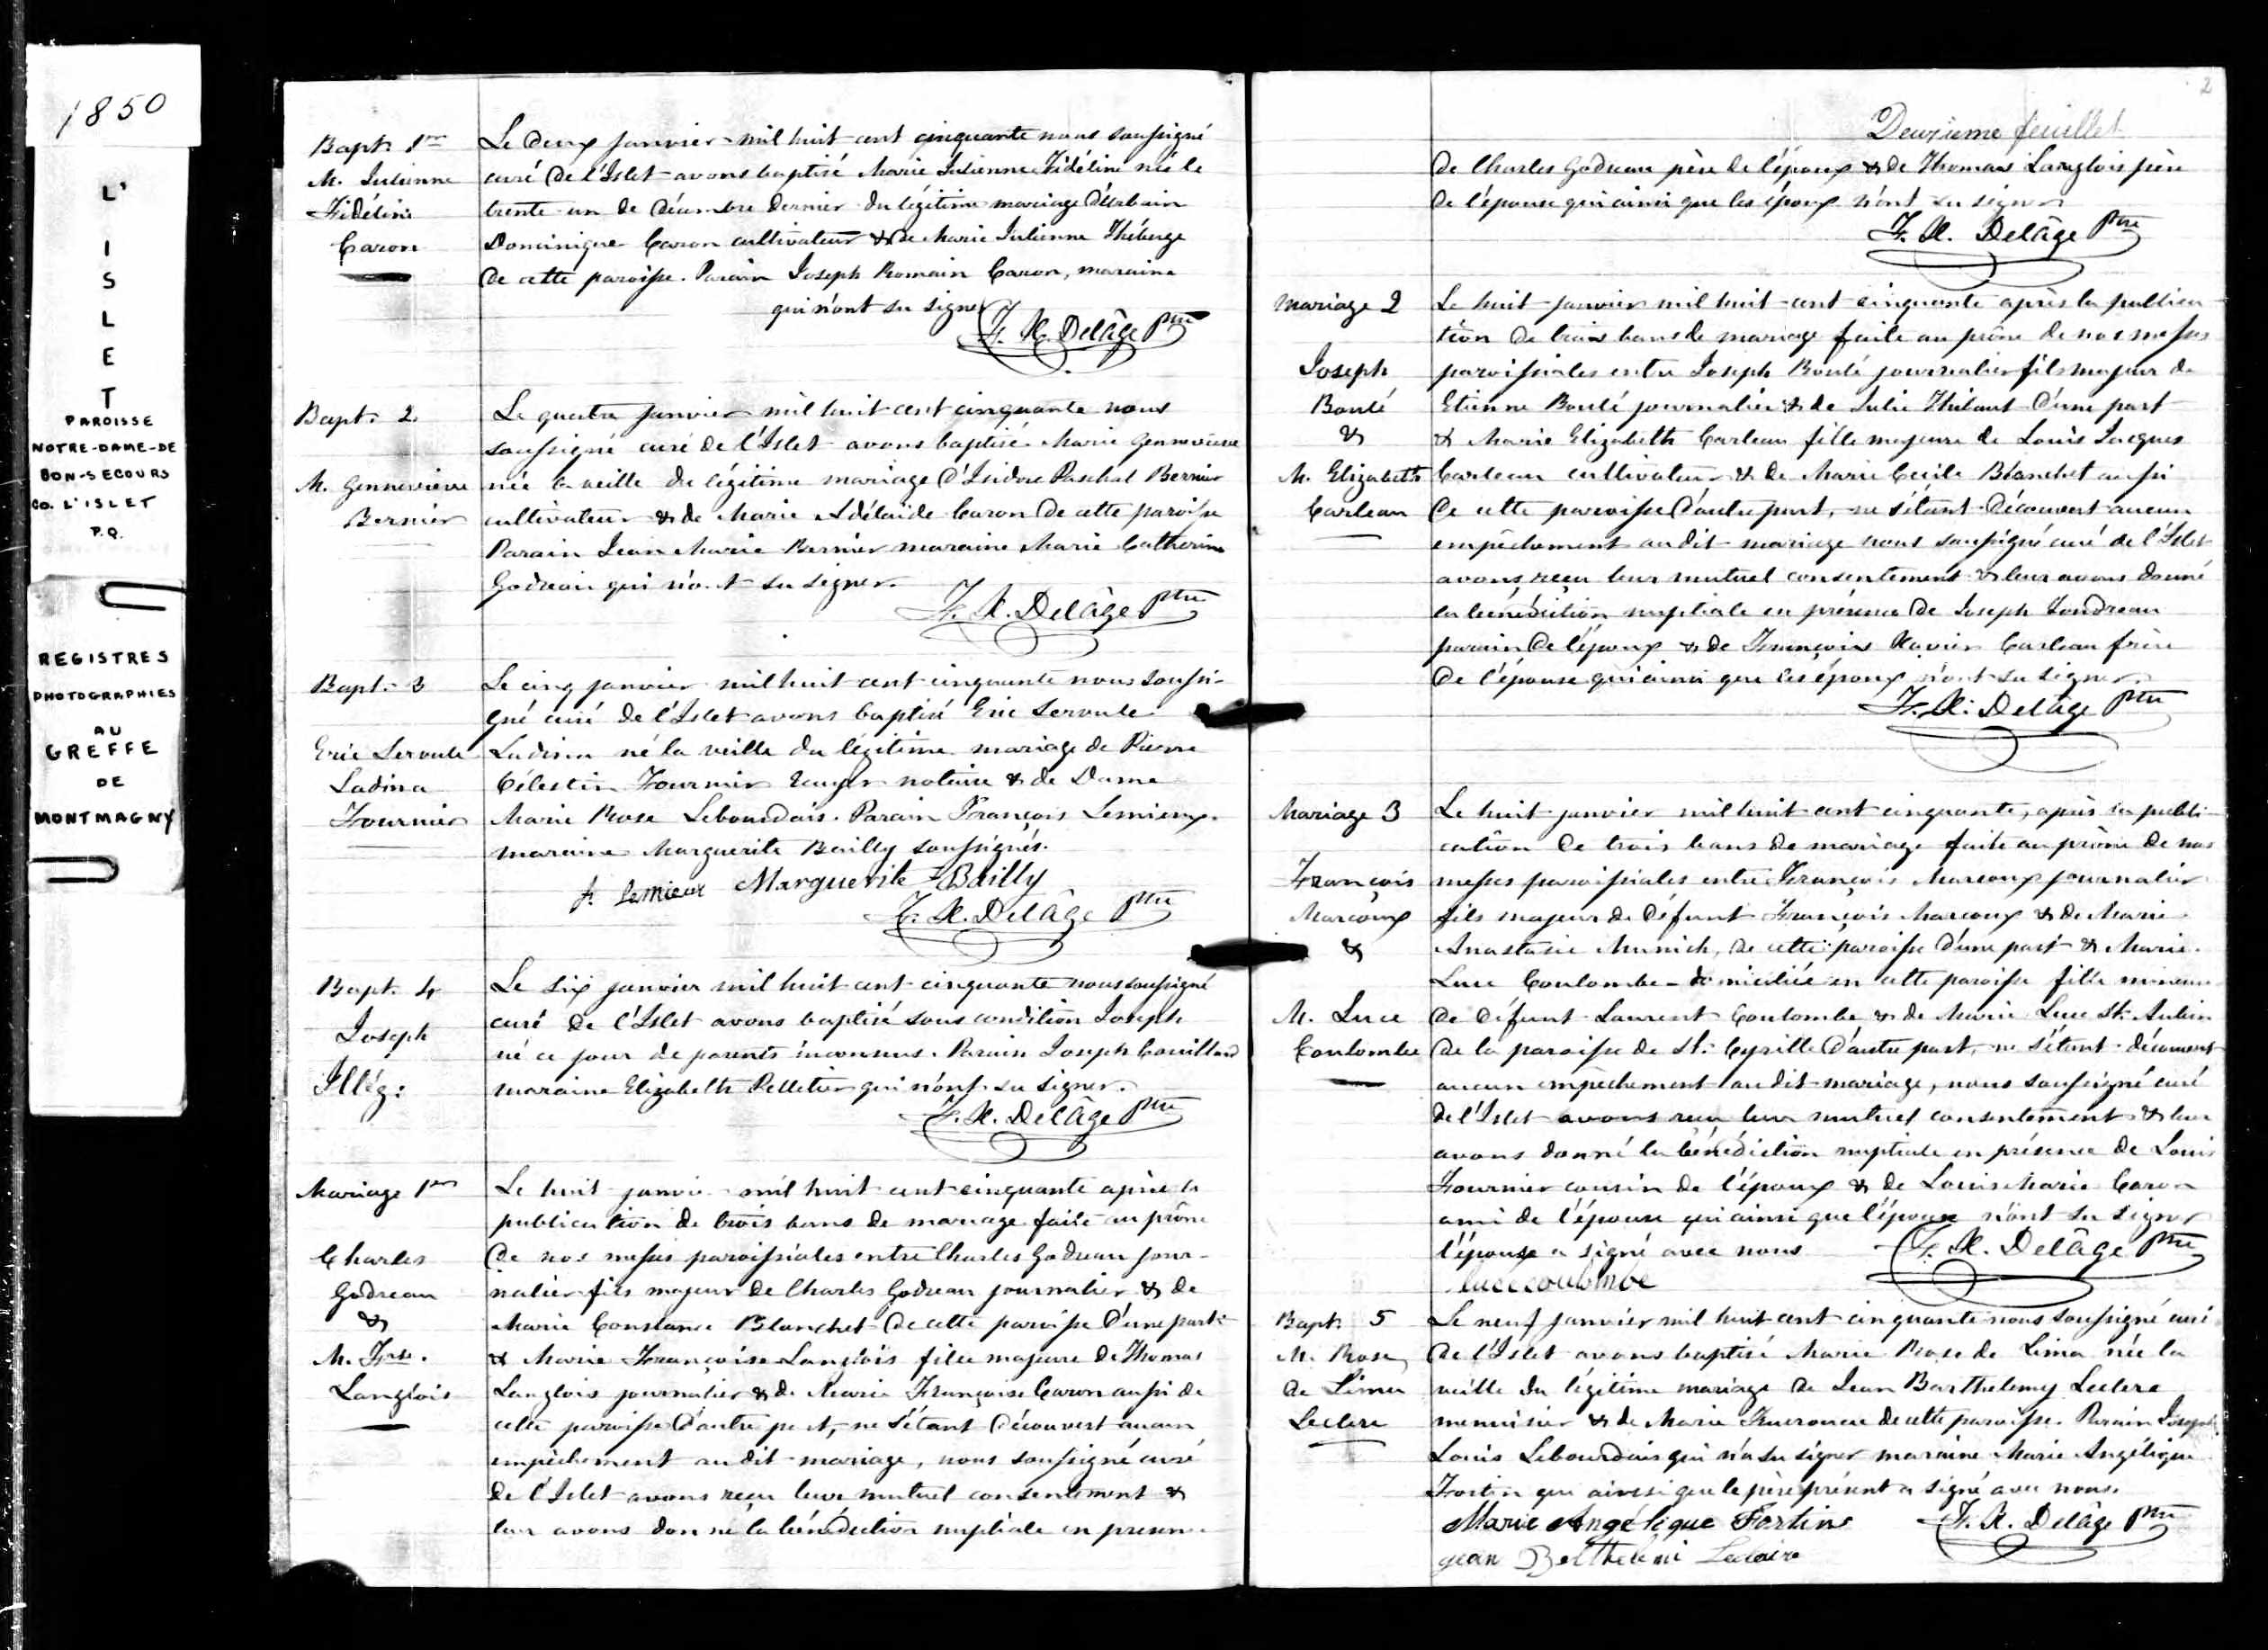 1850
L'
I
S
L
E
T
PAROISSE
NOTRE-DAME-DE
BON-SECOURS
CO. L'ISLET
P.Q.
REGISTRES
PHOTOGRAPHIES
AU
GREFFE
DE
MONTMAGNY
Bapt. 1er
M. Julienne
Fidéline
Caron
Le deux janvier mil huit cent cinquante nous soussigné
curé de l'Islet avons baptisé Marie Julienne Fidéline née le
trente un de décembre dernier du légitime mariage d'Urbain
Dominique Caron cultivateur & de Marie Julienne Théberge
de cette paroisse. Parain Joseph Romain Caron, maraine
qui n'ont su signer
F. X. Delâge Ptre
Bapt. 2
M. Gennevieve
Bernier
Le quatre janvier mil huit cent cinquante nous
soussigné curé de l'Islet avons baptisé Marie Gennevieve
née la veille du légitime mariage d'Isidore Paschal Bernier
cultivateur & de Marie Adélaïde Caron de cette paroisse
Parain Jean Marie Bernier maraine Marie Catherine
Godreau qui n'ont su signer.
F. X. Delâge Ptre
Bapt. 3
Eric Leroule
Ladina
Fournier
Le cinq janvier mil huit cent cinquante nous soussi-
gné curé de l'Islet avons baptisé Eric Leroule
Ladina né la veille du légitime mariage de Pierre
Célestin Fournier notaire & de Dame
Marie Rose Lebourdais. Parain François Lemieux
maraine Marguerite Bailly soussignés.
fr. Lemieux Marguerite Bailly
F. X. Delâge Ptre
Bapt. 4
Joseph
Illég:
Le six janvier mil huit cent cinquante nous soussigné
curé de l'Islet avons baptisé sous condition Joseph
né ce jour de parents inconnus. Parain Joseph Couillard
maraine Elizabeth Pelletier qui n'ont su signer.
F. X. Delâge Ptre
Mariage 1er
Charles
Godreau
&
M. Frse.
Langlois
Le huit janvier mil huit cent cinquante après la
publication de trois bans de mariage faite au prône
de nos messes paroissiales entre Charles Godreau jour-
nalier fils majeur de Charles Godreau journalier & de
Marie Constance Blanchet de cette paroisse d'une part
& Marie Françoise Langlois fille majeure de Thomas
Langlois journalier & de Marie Françoise Caron aussi de
cette paroisse d'autre part, ne s'étant découvert aucun
empêchement au dit mariage, nous soussigné curé
de l'Islet avons reçu leur mutuel consentement &
leur avons donné la bénédiction nuptiale en présence
2
Deuxieme feuillet
de Charles Godreau père de l'époux & de Thomas Langlois père
de l'épouse qui ainsi que les époux n'ont su signer
F. X. Delâge Ptre
Mariage 2
Joseph
Boulé
&
M. Elizabeth
Carleau
Le huit janvier mil huit cent cinquante après la publica-
tion de trois bans de mariage faite au prône de nos messes
paroissiales entre Joseph Boulé journalier fils majeur de
Etienne Boulé journalier & de Julie Thibaut d'une part
& Marie Elizabeth Carleau fille majeure de Louis Jacques
Carleau cultivateur & de Marie Cecile Blanchet aussi
de cette paroisse d'autre part, ne s'étant découvert aucun
empêchement au dit mariage nous soussigné curé de l'Islet
avons reçu leur mutuel consentement & leur avons donné
la bénédiction nuptiale en présence de Joseph Tondreau
parain de l'époux & de François Xavier Carleau frère
de l'épouse qui ainsi que les époux n'ont su signer.
F. X. Delâge Ptre
Mariage 3
François
Marcoux
&
M. Luce
Coulombe
Le huit janvier mil huit cent cinquante, après la publi-
cation de trois bans de mariage faite au prône de nos
messes paroissiales entre François Marcoux journalier
fils majeur de défunt François Marcoux & de Marie
Anastasie Munich, de cette paroisse d'une part & Marie
Luce Coulombe domiciliée en cette paroisse fille mineure
de défunt Laurent Coulombe & de Marie Luce St. Aubin
de la paroisse de St. Cyrille d'autre part, ne s'étant découvert
aucun empêchement au dit mariage, nous soussigné curé
de l'Islet avons reçu leur mutuel consentement & leur
avons donné la bénédiction nuptiale en présence de Louis
Fournier cousin de l'époux & de Louis Marie Caron
ami de l'épouse qui ainsi que l'époux n'ont su signer
l'épouse a signé avec nous
F. X. Delâge Ptre
luce coulombe
Bapt. 5
M. Rose
de Lima
Leclerc
Le neuf janvier mil huit cent cinquante nous soussigné curé
de l'Islet avons baptisé Marie Rose de Lima née la
veille du légitime mariage de Jean Barthelemy Leclerc
menuisier & de Marie de cette paroisse. Parain Joseph
Louis Lebourdais qui n'a su signer maraine Marie Angélique
Fortin qui ainsi que le père présent a signé avec nous.
Marie Angélique Fortin
F. X. Delâge Ptre
jean Belthelemi Leclaire